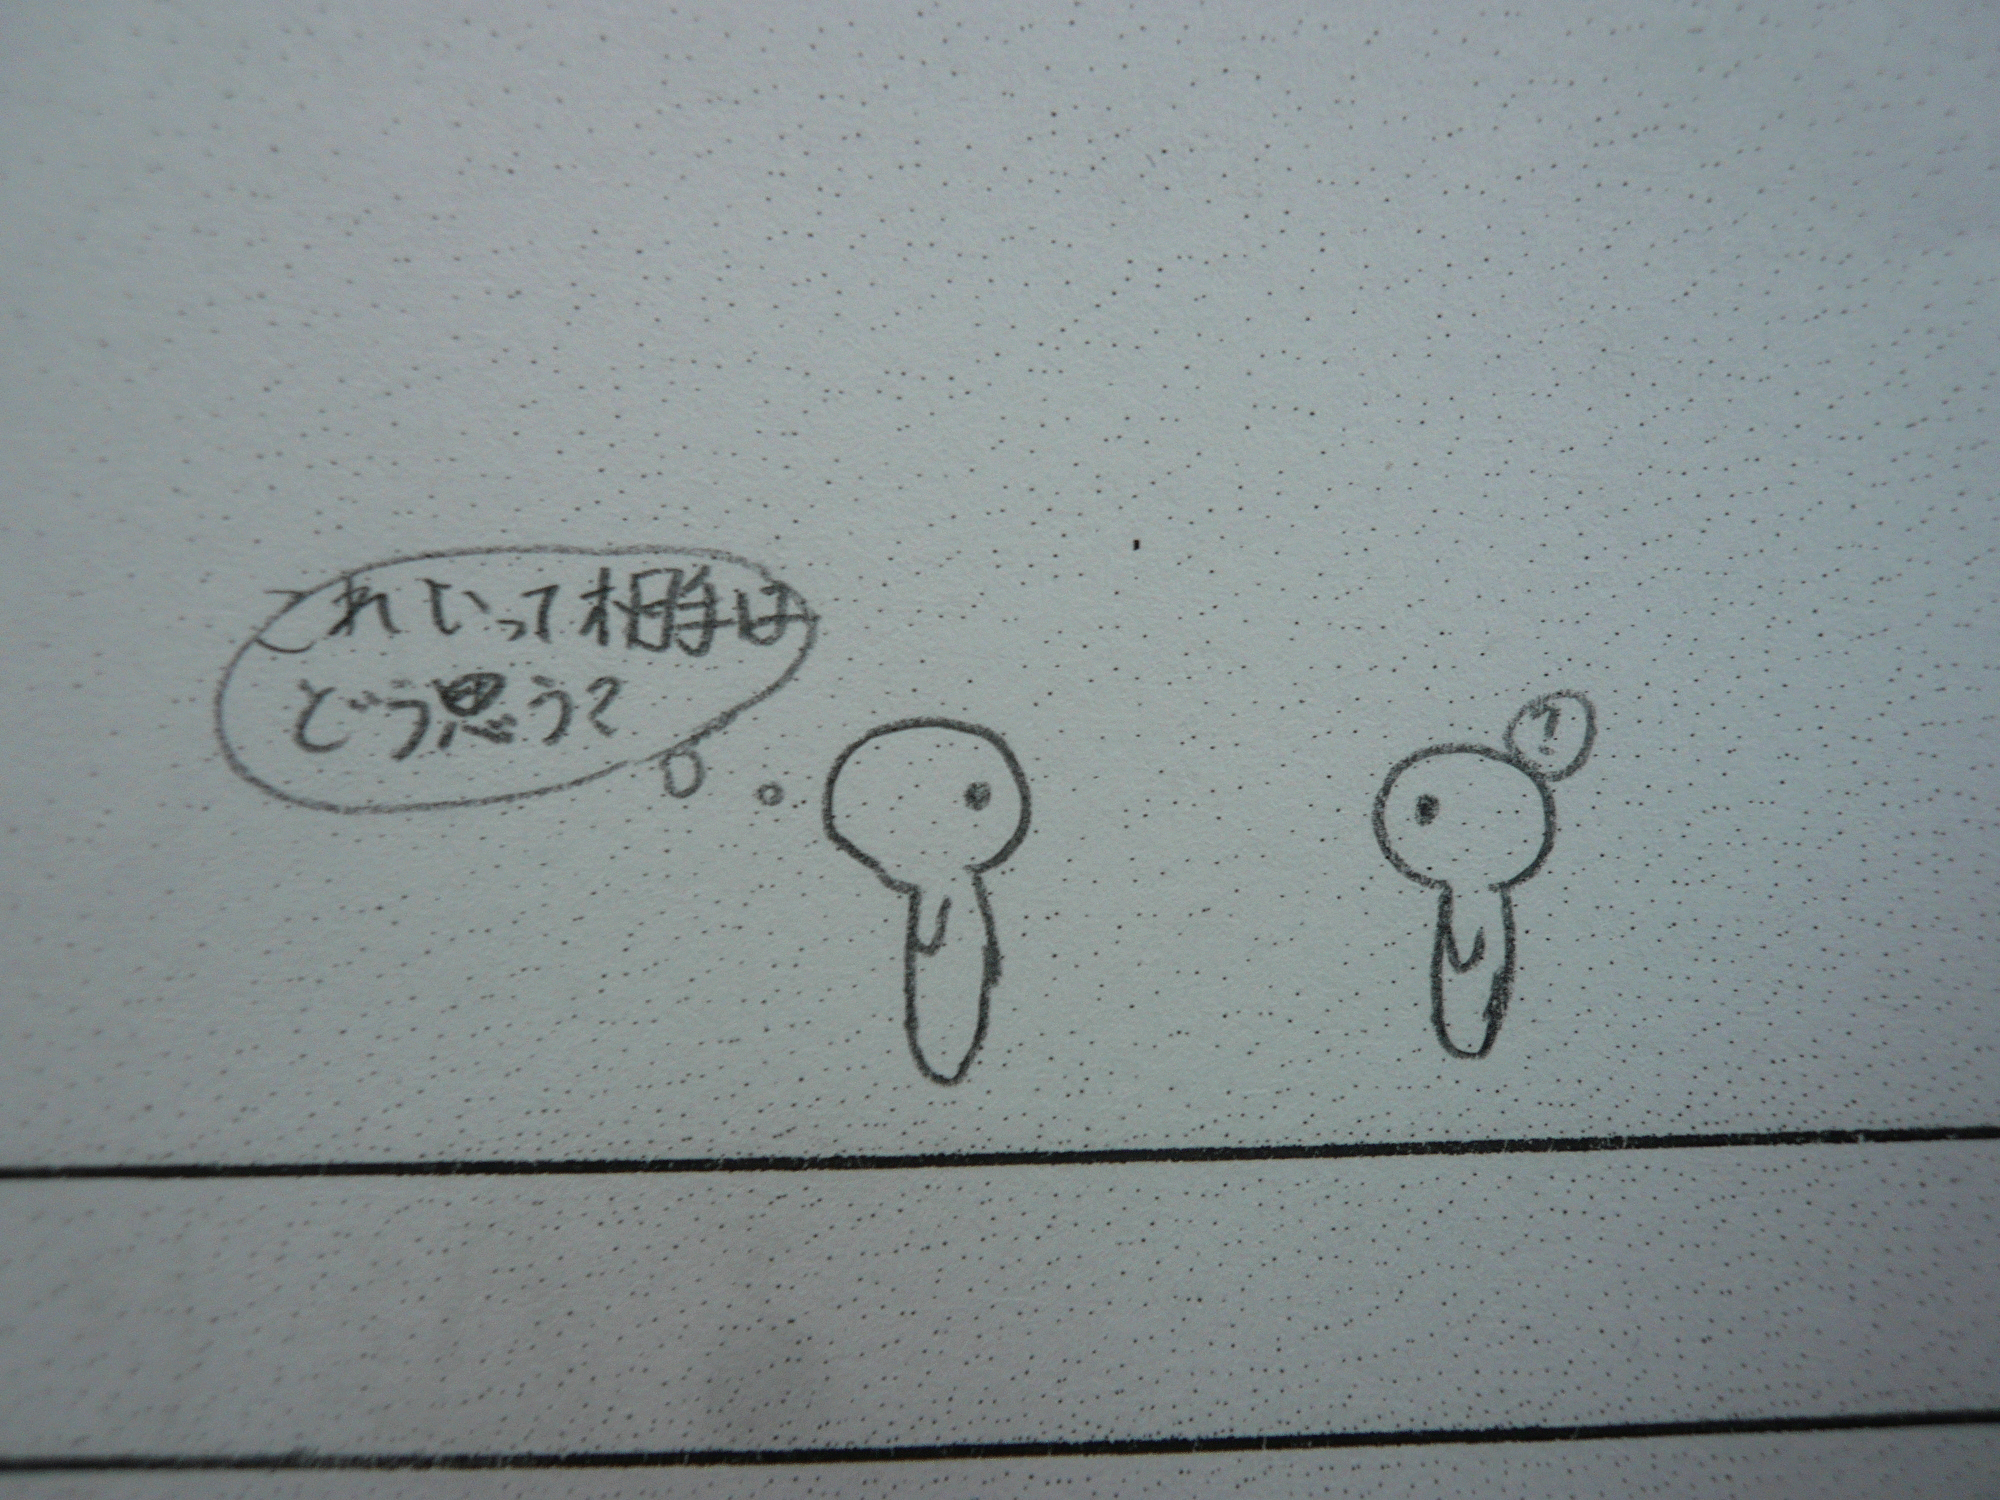 これいって相手は
どう思う?
?